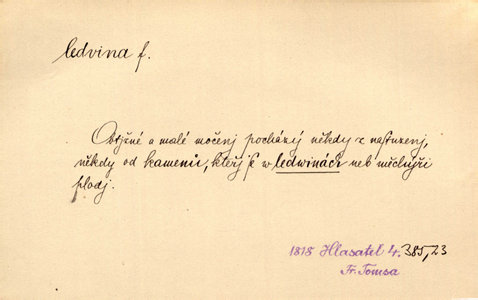 ledvina f.
Obtjžné a malé močenj pocházý někdy z nastuzenj,
někdy od kamenů, kteřj se w ledwinách neb měchýři
plodj.
1818 Hlasatel 4. 385,23
Fr. Tomsa